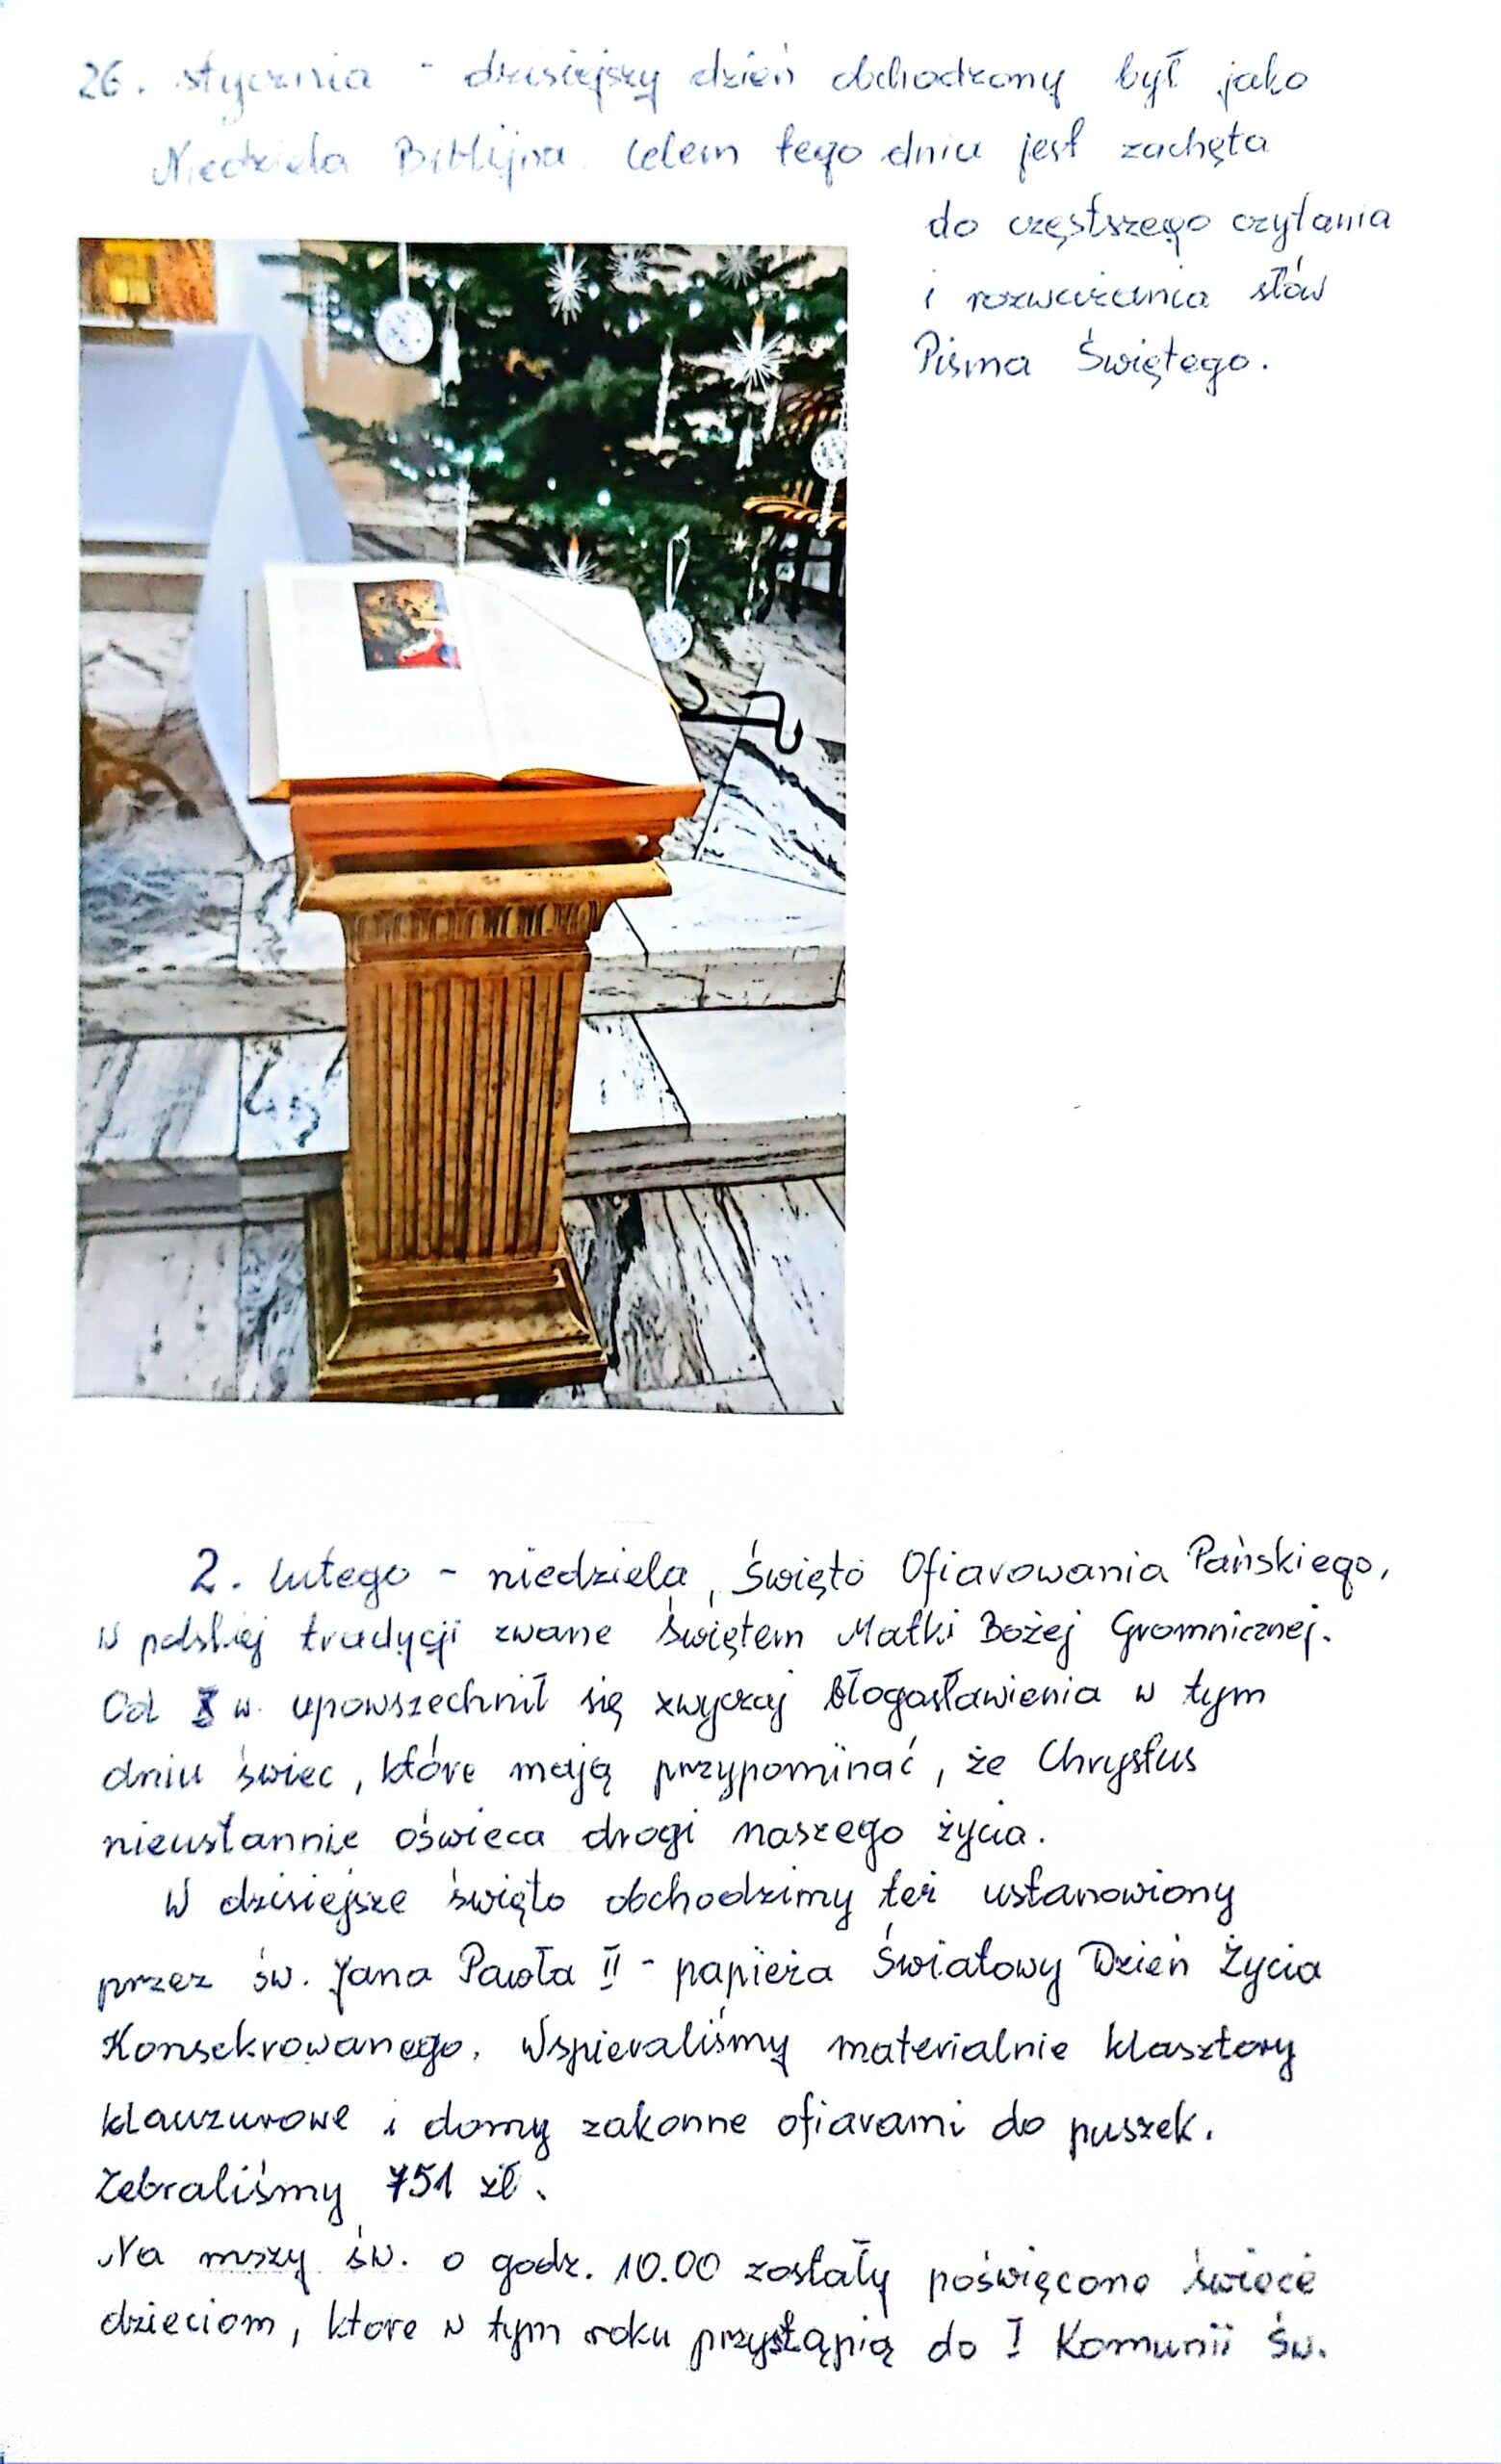 26. stycznia - dzisiejszy dzień obchodzony był jako
Niedziela Biblijna. Celem tego dnia jest zachęta
do częstszego czytania
i rozważania słów
Pisma Świętego.
2. lutego - niedziela, Święto Ofiarowania Pańskiego,
w polskiej tradycji zwane świętem Matki Bożej Gromnicznej.
Od X w. upowszechnił się zwyczaj błogosławienia w tym
dniu świec, które mają przypominać, że Chrystus
nieustannie oświeca drogi naszego życia.
W dzisiejsze święto obchodzimy też ustanowiony
przez św. Jana Pawła II - papieża Światowy Dzień Życia
Konsekrowanego. Wspieraliśmy materialnie klasztory
klauzurowe i domy zakonne ofiarami do puszek.
Zebraliśmy 751 zł.
Na mszy św. o godz. 10.00 zostały poświęcone świece
dzieciom, które w tym roku przystąpią do I Komunii Św.